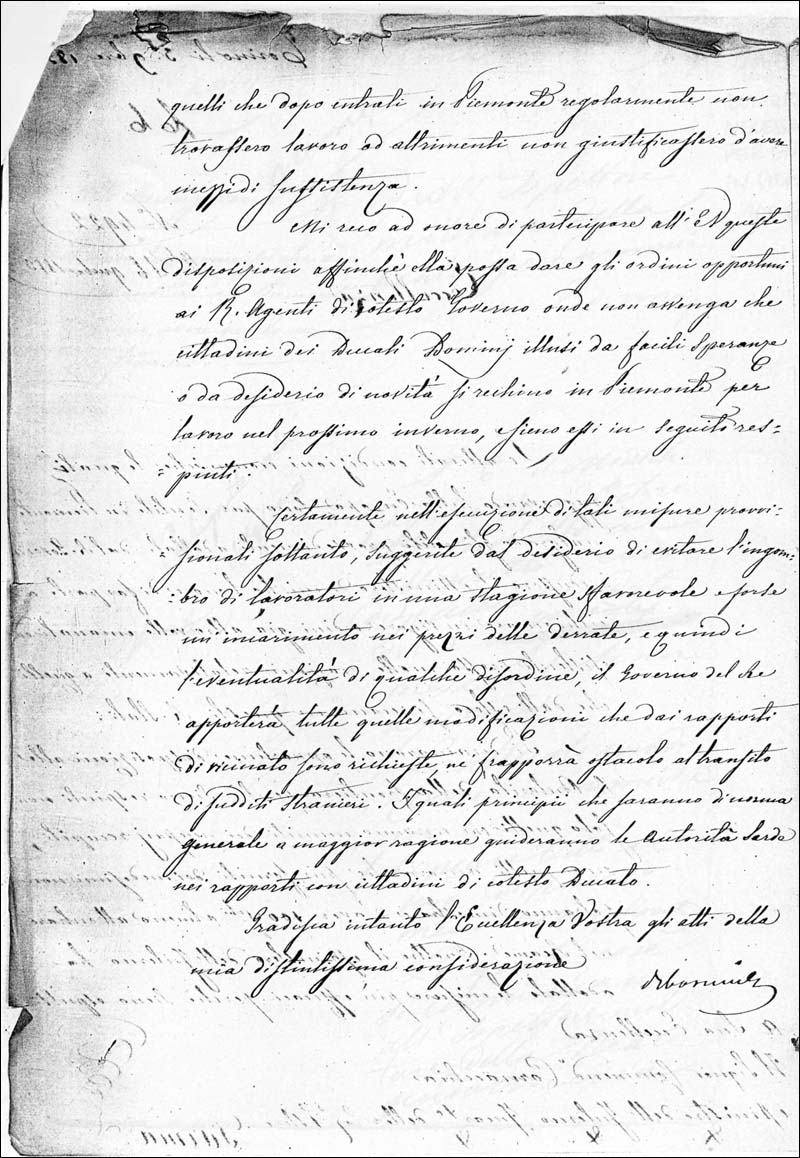 quelli che dopo entrati in Piemonte regolarmente non
trovassero lavoro od altrimenti non giustificassero d'avere
mezzi di sussistenza.
Mi reco ad onore di partecipare all' E V queste
disposizioni affinchè ella possa dare gli ordini opportuni
ai R. Agenti di cotesto Governo onde non avvenga che
cittadini dei Ducali Dominj illusi da facili speranze
o da desiderio di novità si rechino in Piemonte per
lavoro nel prossimo inverno, e sieno essi in seguito res=
=pinti.
Certamente nell'esecuzione di tali misure provvi=
=sionali soltanto, suggerite dal desiderio di evitare l'ingom=
=bro di lavoratori in una stagione sfavorevole e forse
un incarimento nei prezzi delle derrate, e quindi
l'eventualità di qualche disordine, il Governo del Re
apporterà tutte quelle modificazioni che dai rapporti
di vicinato sono richieste, nè frapporrà ostacolo al transito
di sudditi stranieri. I quali principii che saranno di norma
generale a maggior ragione guideranno le Autorità Sarde
nei rapporti con cittadini di cotesto Ducato.
Gradisca intanto l'Eccellenza Vostra gli atti della
mia distintissima considerazione